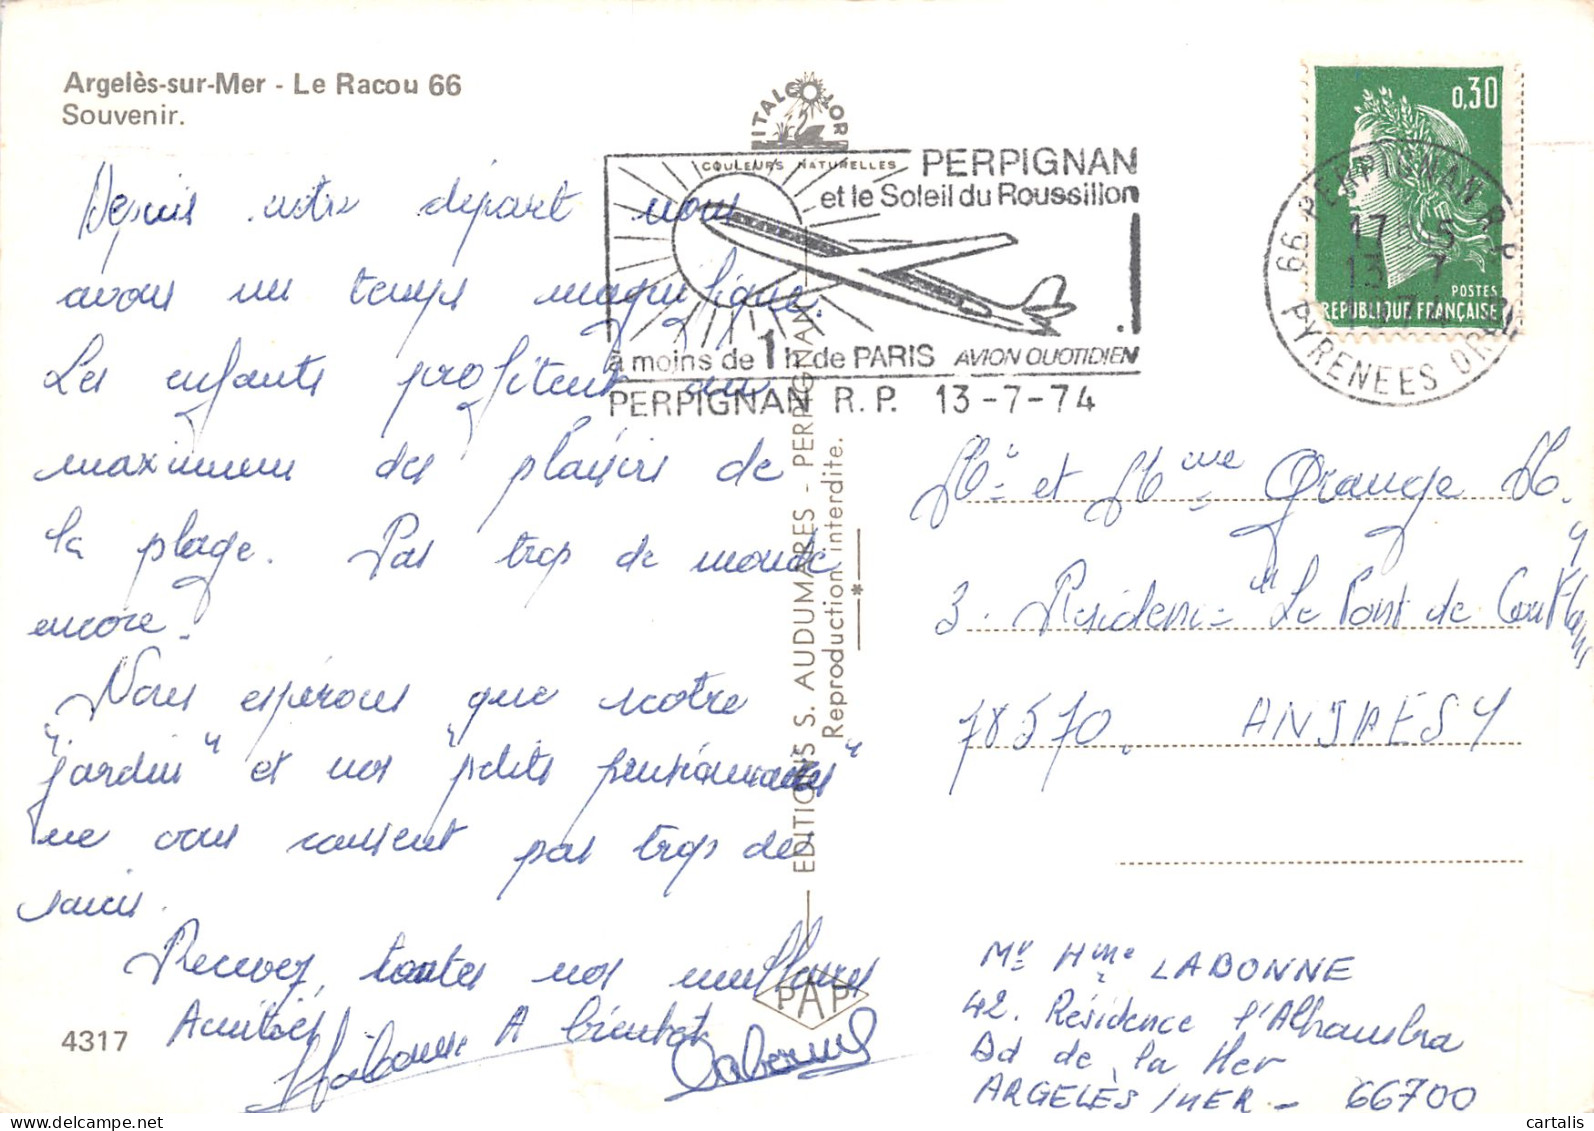 Argelès-sur-Mer - Le Racou 66
Souvenir.
ITALCOLOR
COULEURS NATURELLES
PERPIGNAN
et le Soleil du Roussillon
à moins de 1h de PARIS AVION QUOTIDIEN
PERPIGNAN R.P. 13-7-74
0,30
POSTES
REPUBLIQUE FRANÇAISE
66 PERPIGNAN R.P.
17 5
13 7
1974
PYRENEES OR.
Depuis notre départ nous
avons un temps magnifique.
Les enfants profitent au
maximum des plaisirs de
la plage. Pas trop de monde
encore.
Nous espérons que notre
"jardin" et nos "petits pensionnaires"
ne vous causent pas trop de
soucis.
Recevez, toutes nos meilleures
Amitiés A bientôt
Labonne
4317
EDITIONS S. AUDUMARES - PERPIGNAN
Reproduction interdite.
PAP
Mr et Mme Grange M.
3. Résidence "Le Pont de Conflans"
78570. ANDRESY
Mr Mme LABONNE
42. Résidence l'Alhambra
Bd de la Mer
ARGELÈS /MER - 66700
© cartalis
delcampe.net